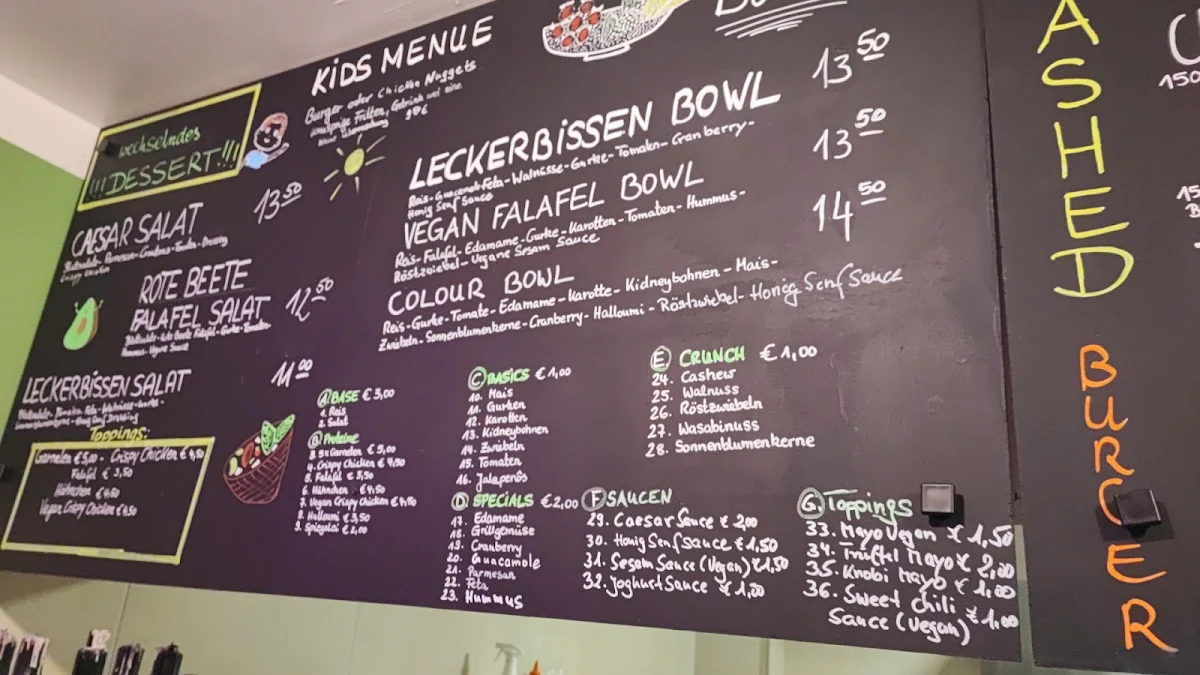 wechselndes
!!! DESSERT !!!
CAESAR SALAT 13 50
Crispy Chicken
ROTE BEETE
FALAFEL SALAT 12 50
LECKERBISSEN SALAT 11 00
Toppings:
Garnelen € 5,00 - Crispy Chicken € 4,50
Falafel € 3,50
Hähnchen € 4,50
Vegan Crispy Chicken € 4,50
KIDS MENUE
Burger oder Chicken Nuggets
knusprige Fritten, Getränk und eine
LECKERBISSEN BOWL 13 50
Reis - Guacamole - Feta - Walnüsse - Gurke - Tomaten - Cranberry -
Honig Senf Sauce
VEGAN FALAFEL BOWL 13 50
Reis - Falafel - Edamame - Gurke - Karotten - Tomaten - Hummus -
Röstzwiebel - Vegane Sesam Sauce
COLOUR BOWL 14 50
Reis - Gurke - Tomate - Edamame - Karotte - Kidneybohnen - Mais -
Zwiebeln - Sonnenblumenkerne - Cranberry - Halloumi - Röstzwiebel - Honig Senf Sauce
A BASE € 3,00
1. Reis
2. Salat
B Proteine
3. 5x Garnelen € 5,00
4. Crispy Chicken € 4,50
5. Falafel € 3,50
6. Hähnchen € 4,50
7. Vegan Crispy Chicken € 4,50
8. Halloumi € 3,50
9. Spiegelei € 2,00
C BASICS € 1,00
10. Mais
11. Gurken
12. Karotten
13. Kidneybohnen
14. Zwiebeln
15. Tomaten
16. Jalapenõs
D SPECIALS € 2,00
17. Edamame
18. Grillgemüse
19. Cranberry
20. Guacamole
21. Parmesan
22. Feta
23. Hummus
E CRUNCH € 1,00
24. Cashew
25. Walnuss
26. Röstzwiebeln
27. Wasabinuss
28. Sonnenblumenkerne
F SAUCEN
29. Caesar Sauce € 2,00
30. Honig Senf Sauce € 1,50
31. Sesam Sauce (Vegan) € 1,50
32. Joghurt Sauce € 1,20
G. Toppings
33. Mayo Vegan € 1,50
34. Trüffel Mayo € 2,00
35. Knobi Mayo € 1,00
36. Sweet Chili € 1,00
Sauce (Vegan)
ASHED
BURGER
150